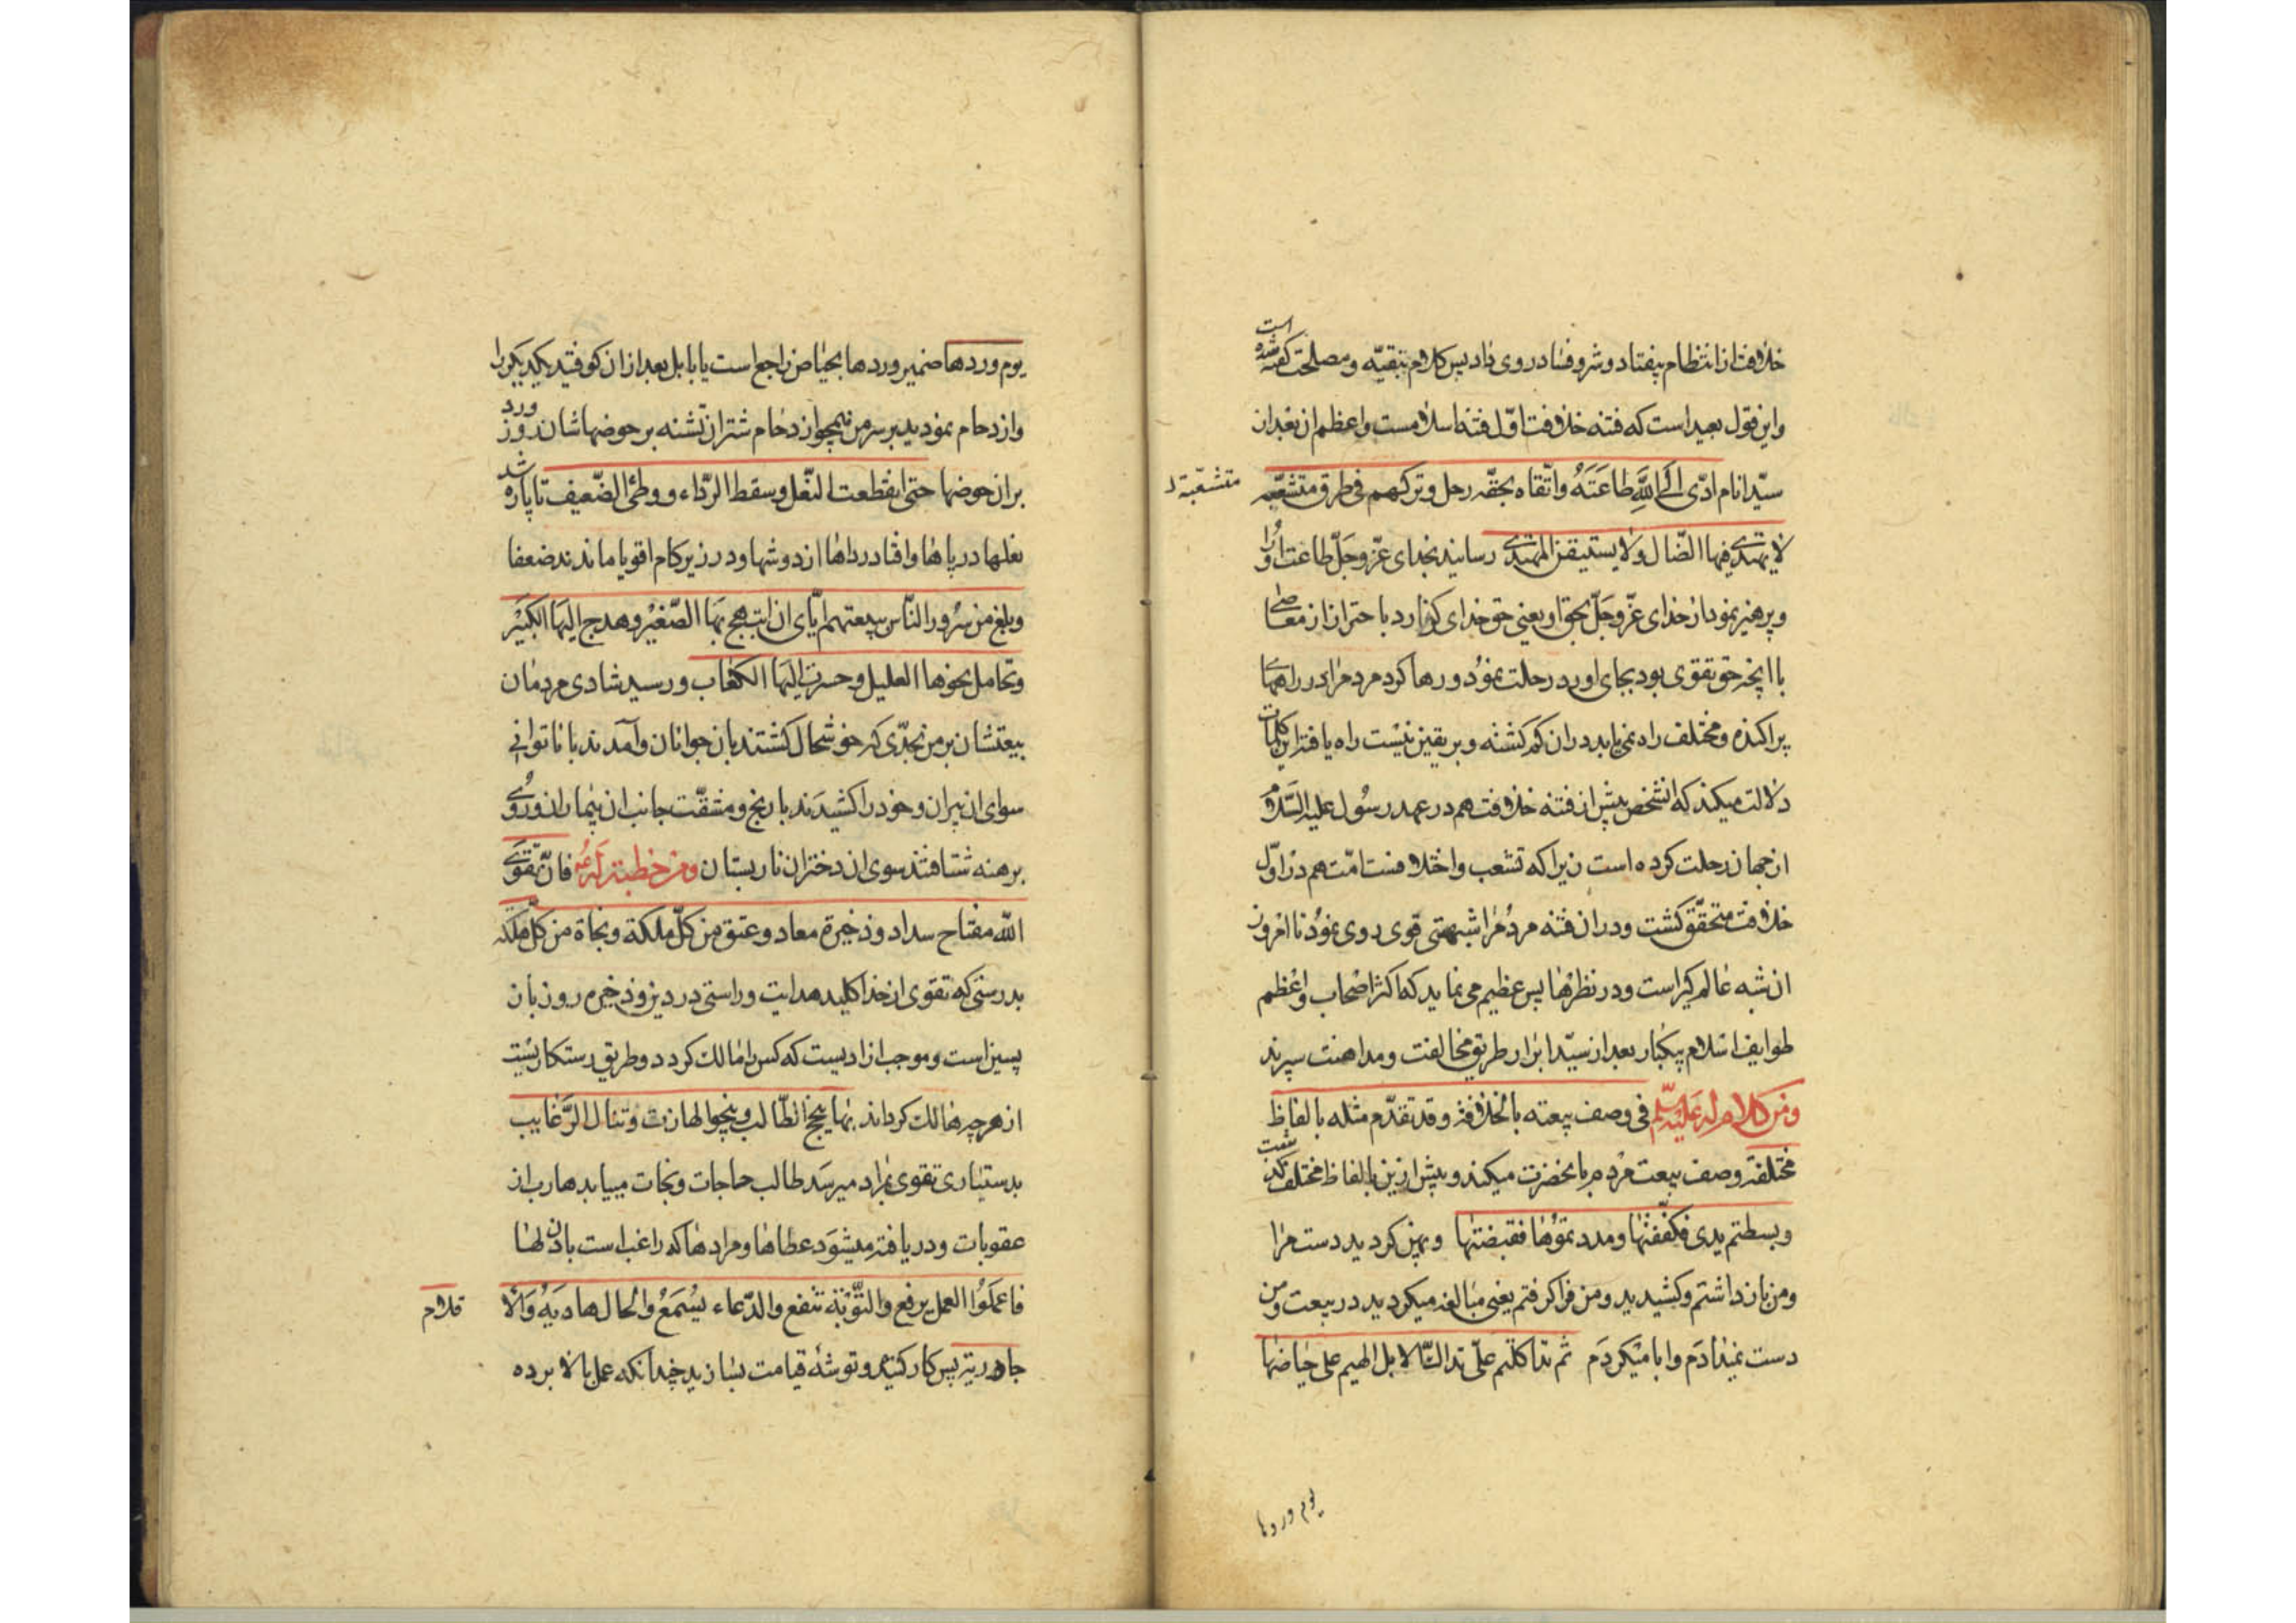 خلافت از انتظام بیفتاد و شر و فساد روی داد پس کلام بتقیّه و مصلحت گفته شده است
و این قول بعید است که فتنه خلافت اوّل فتنهٔ اسلامست و اعظم از بعد از
سیّد انام ادّی الی اللّه طاعَتَهُ و اتّقاه بحقّه رحل و ترکهم فی طرق متشعّبه
متشعّبة
لا یهتدی فیها الضّال ولا یستیقن المهتدی رسانید بخدای عزّ و جَلّ طاعت او را
و پرهیز نمود از خدای عزّ و جَلّ بحق او یعنی حق خدای گزارد باحتراز از معاصی
با انچه حق تقوی بود بجای اورد رحلت نمود و رها کرد مردم را در راههای
پراکنده و مختلف راه نمی یابد دران گم کشته و بر یقین نیست راه یافته این کلمات
دلالت میکند که انشخص پیش از فتنه خلافت هم در عهد رسُول علیه السّلام
از جهان رحلت کرده است زیرا که تشعب و اختلاف امّت هم در اوّل
خلافت متحقّق کشت و در ان فتنه مردم را شبهتی قوی روی نمود تا امروز
ان شبه عالم کیر است و در نظرها بس عظیم می نماید که اکثر اصحاب و اعظم
طوایف اسلام بیکبار بعد از سیّد ابرار طریق مخالفت و مداهنت سپرند
و من کلام له علیه السلم فی وصف بیعته بالخلافة و قد تقدّم مثله بالفاظ
مختلفة وصف بیعت مردم بانحضرت میکند و پیش ازین بالفاظ مختلف کذشت
و بسطتم یدی فکففتها و مددتموها فقبضتها و پهن کردید دست مرا
و من باز داشتم و کشیدید و من فرا کرفتم یعنی مبالغه میکردید در بیعت و من
دست نمیدادم و ابا میکردم ثم تداککتم علیّ تداک الابل الهیم علی حیاضها
یوم ورودها
یوم وردها ضمیر وردها بحیاض راجع است یا بابل بعد ازان کوفتید یکدیکر را
و ازدحام نمودید بر سر من همچو ازدحام شتران تشنه بر حوضهاشان روز ورد
بران حوضها حتی انقطعت النّعل و سقط الرّداء و وطئ الضّعیف تا پاره شد
نعلها در پاها و افتاد رداها از دوشها و در زیر کام اقویا ماندند ضعفا
و بلغ من سُرور النّاس ببیعتهم ایّای ان ابتهج بها الصّغیر و هدج الیها الکبیر
و تحامل نحوها العلیل و حسرت الیها الکعاب و رسید شادی مردمان
بیعتشان بر من بحدّی که خوشحال کشتند بان جوانان و آمدند با ناتوانی
سوای ان پیران و خود را کشیدند با رنج و مشقّت جانب ان بیماران و روی
برهنه شتافتند سوی ان دختران نار پستان و من خطبة له ع فانّ تقوی
اللّه مفتاح سداد و ذخیرة معاد و عتق من کلّ ملکة و نجاة من کلّ هلکة
بدرستی که تقوی از خدا کلید هدایت و راستی در دین و ذخیره روز باز
پسین است و موجب ازادیست که کس را مالک کردد و طریق رستکاریست
از هرچه هالک کرداند بها ینجح الطّالب و ینجو الهارب و تنال الرّغایب
بدستیاری تقوی بمراد میرسد طالب حاجات و نجات مییابد هارب از
عقوبات و دریافته میشود عطاها و مرادها که راغب است بان لها
فاعملوا العمل یرفع و التّوبة تنفع والدّعاء یُسْمَعُ والحال هادیة والا
قلام
جاریة پس کار کنید و توشهٔ قیامت بسازید چندانکه عمل بالا برده